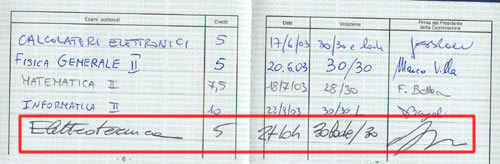 Esami sostenuti Crediti Data Votazione Firma del Presidente della Commissione
CALCOLATORI ELETTRONICI 5 17/6/03 30/30 e lode
FISICA GENERALE II 5 20.6.03 30/30 Marco Villa
MATEMATICA II 7,5 18/7/03 28/30 F.
INFORMATICA II 10 30/30
Elettrotecnica 5 30 lode/30
- 6 - - 7 -